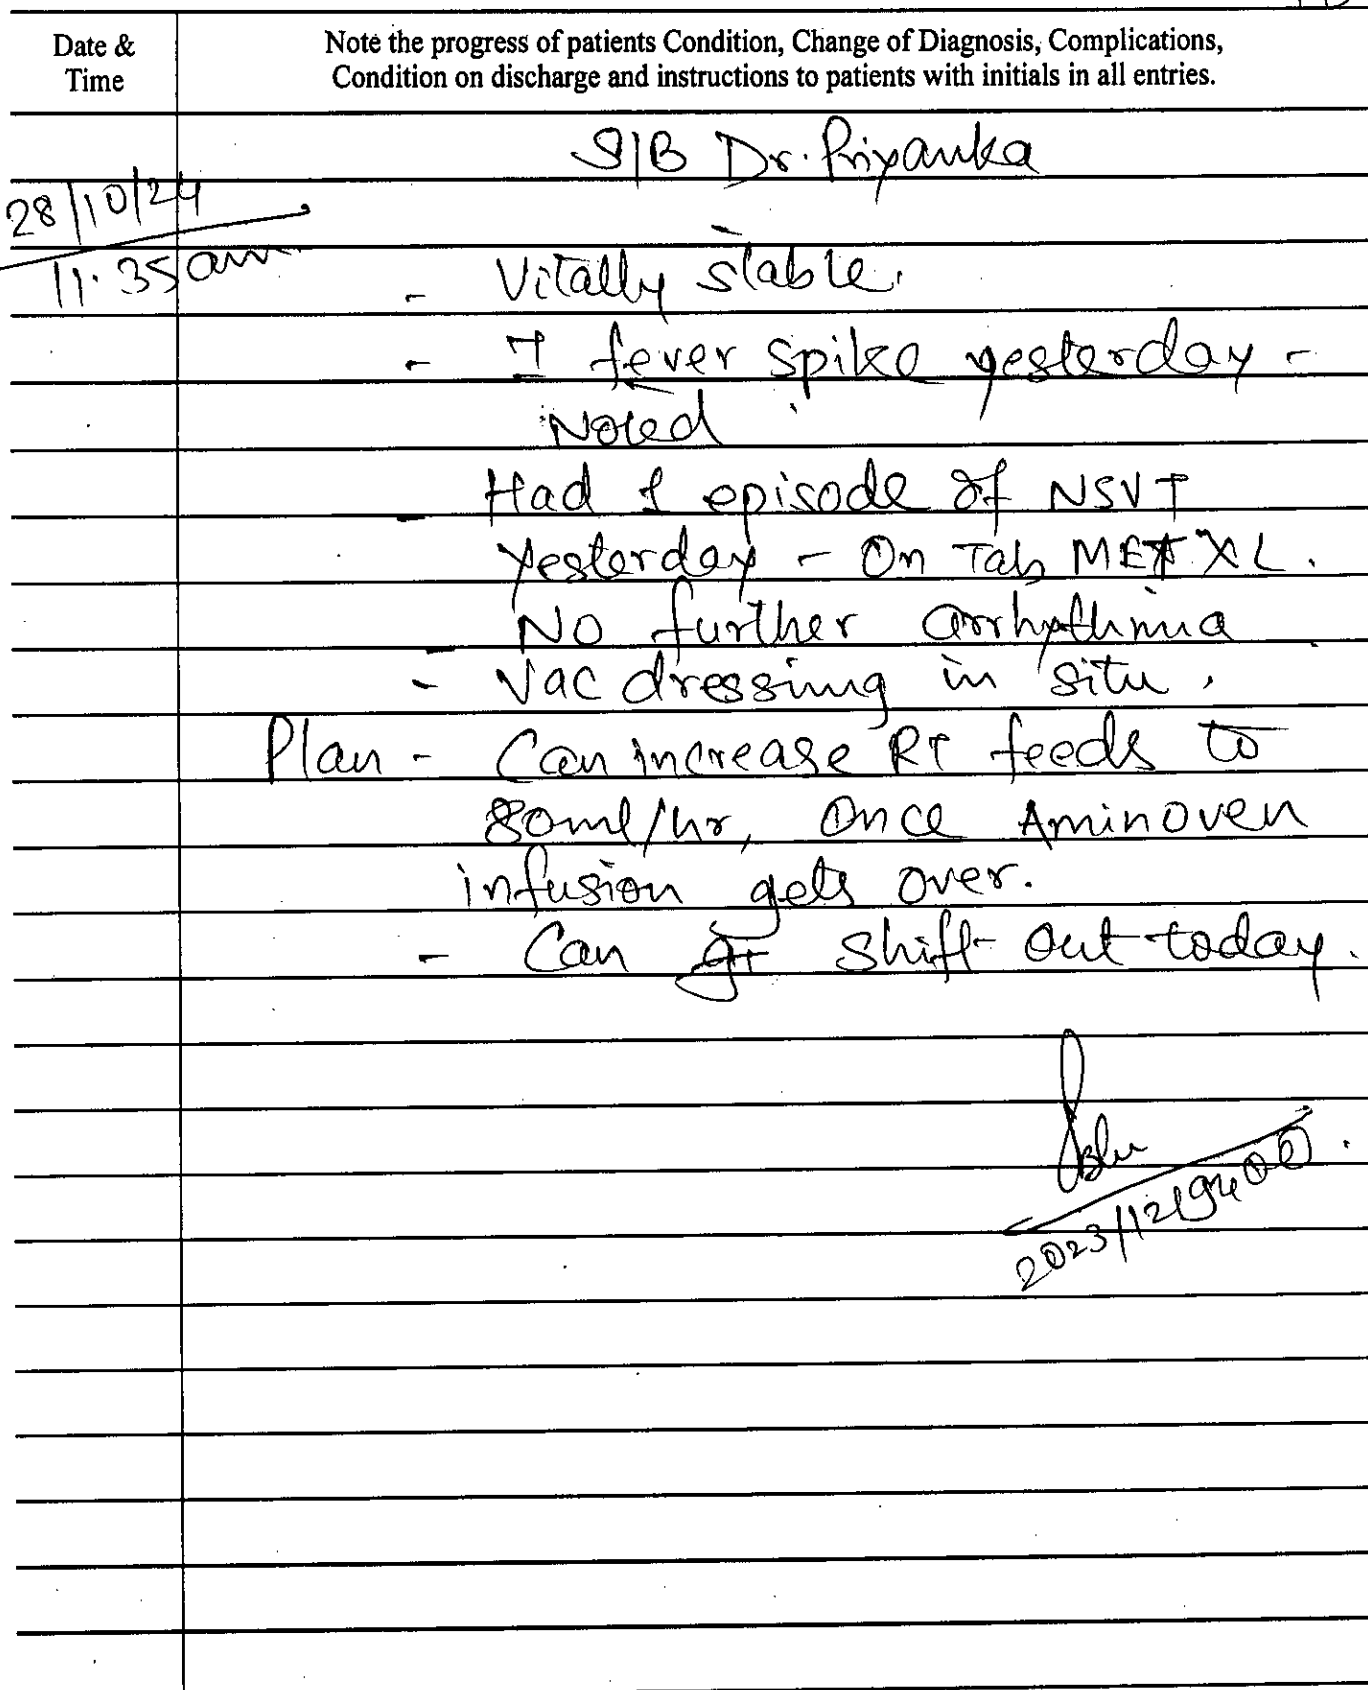 Date &
Time
Note the progress of patients Condition, Change of Diagnosis, Complications,
Condition on discharge and instructions to patients with initials in all entries.
S/B Dr. Priyanka
28/10/24
11:35am
- Vitally stable.
- I fever spike yesterday -
Noted
- Had 1 episode of NSVT
yesterday - On Tab MET XL.
- No further arrhythmia
- Vac dressing in situ.
Plan - Can increase RT feeds to
80ml/hr, Once Aminoven
infusion gets over.
- Can shift out today.